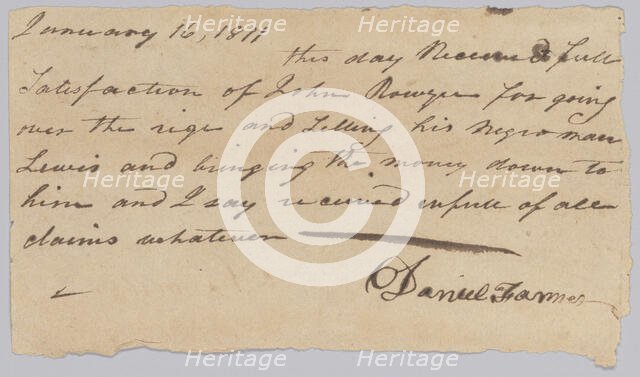 January 16, 1811
this day Received full
Satisfaction of John Rowzee for going
over the rige and Selling his Negro man
Lewis and bringing the money down to
him and I say received in full of all
claims whatever
Daniel Farmer
Heritage Heritage Heritage
Heritage Heritage
Heritage Heritage Heritage
Heritage Heritage
Heritage Heritage Heritage